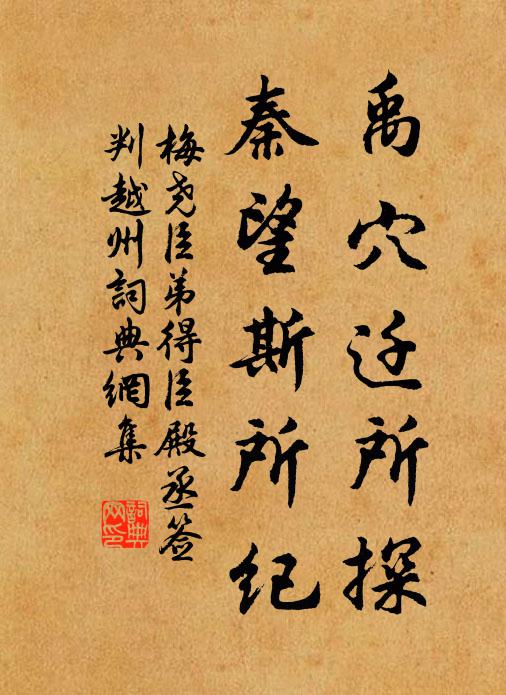 禹穴迁所探
秦望斯所纪
梅尧臣弟得臣殿丞签
判越州詞典網集
詞典網印